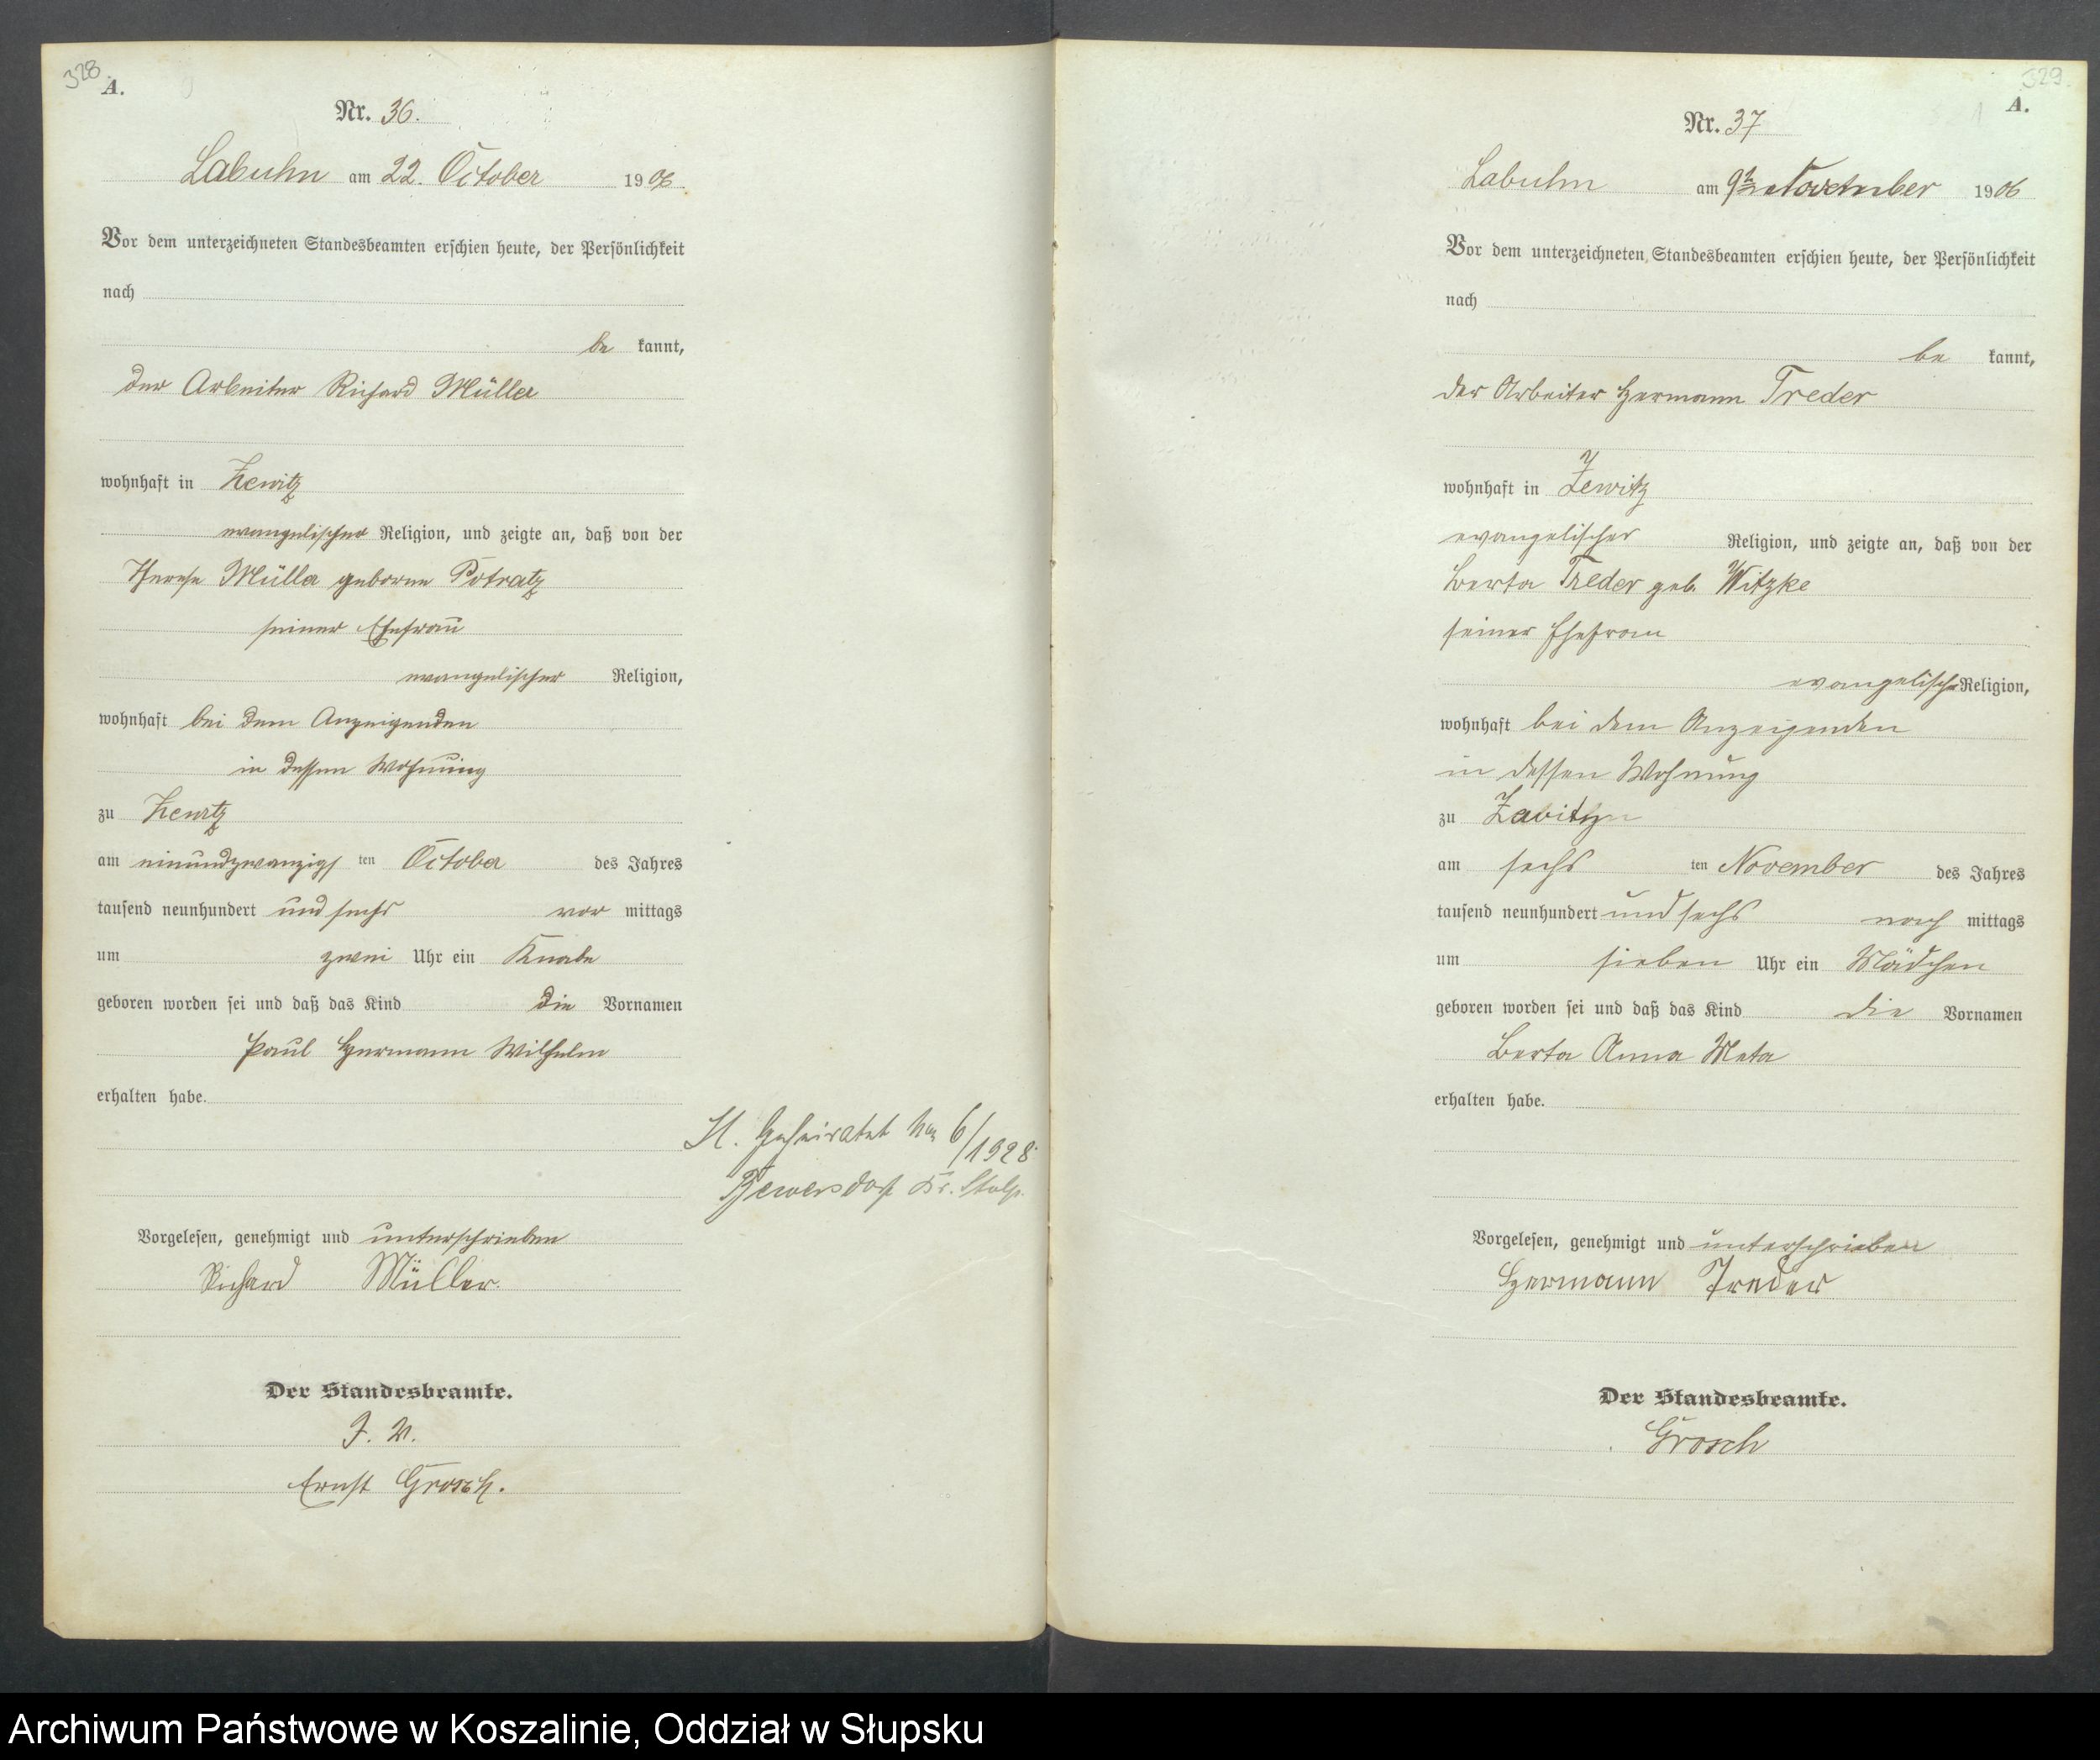 328
A.
Nr. 36.
Labuhn am 22. October 1906.
Vor dem unterzeichneten Standesbeamten erschien heute, der Persönlichkeit
nach
be kannt,
der Arbeiter Richard Müller
wohnhaft in Zewitz
evangelischer Religion, und zeigte an, daß von der
Therese Müller geborne Potratz
seiner Ehefrau
evangelischer Religion,
wohnhaft bei dem Anzeigenden
in dessen Wohnung
zu Zewitz
am einundzwanzigs ten October des Jahres
tausend neunhundert und sechs vor mittags
um zwei Uhr ein Knabe
geboren worden sei und daß das Kind die Vornamen
Paul Hermann Wilhelm
erhalten habe.
H. Geheiratet No 6/1928
Bewersdorf Kr. Stolp.
Vorgelesen, genehmigt und unterschrieben
Richard Müller.
Der Standesbeamte.
J. V.
Ernst Grosch.
329
A.
Nr. 37
Labuhn am 9ten November 1906
Vor dem unterzeichneten Standesbeamten erschien heute, der Persönlichkeit
nach
be kannt,
der Arbeiter Hermann Treder
wohnhaft in Zewitz
evangelischer Religion, und zeigte an, daß von der
Berta Treder geb. Witzke
seiner Ehefrau
evangelischer Religion,
wohnhaft bei dem Anzeigenden
in dessen Wohnung
zu
am sechs ten November des Jahres
tausend neunhundert und sechs nach mittags
um sieben Uhr ein Mädchen
geboren worden sei und daß das Kind die Vornamen
Berta Anna Meta
erhalten habe.
Vorgelesen, genehmigt und unterschrieben
Hermann Treder
Der Standesbeamte.
Grosch
Archiwum Państwowe w Koszalinie, Oddział w Słupsku